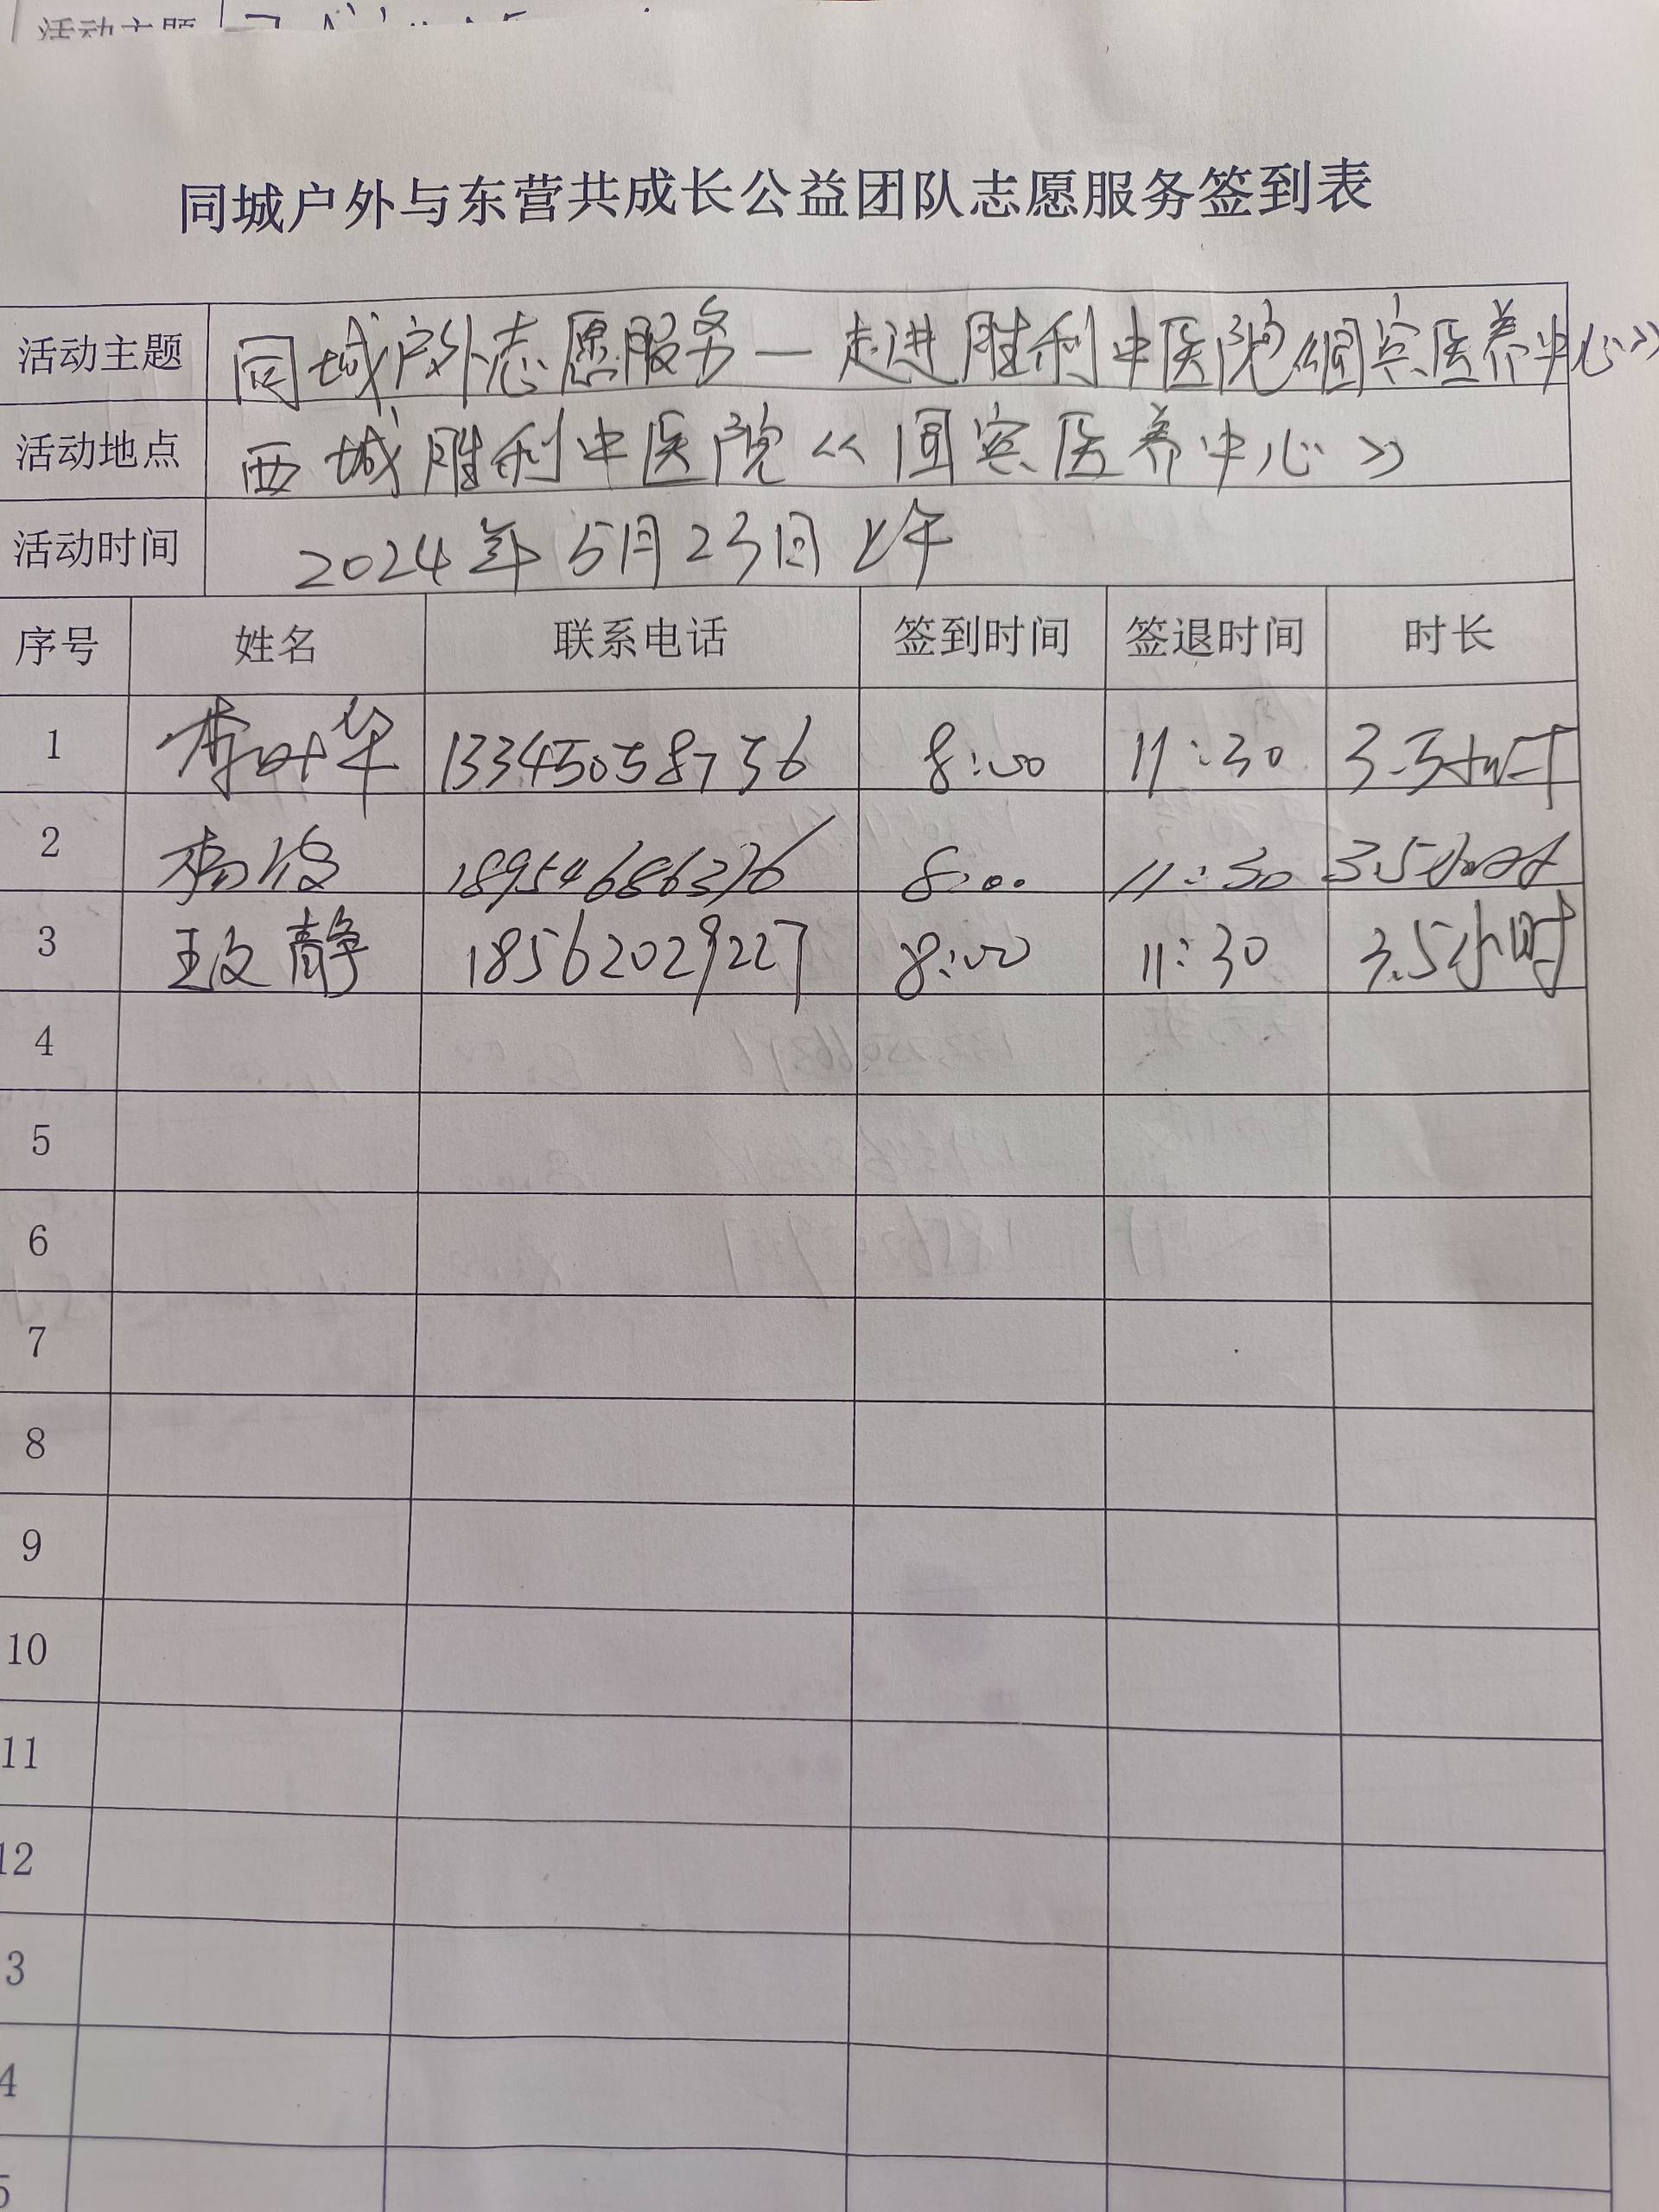 活动主题
同城户外与东营共成长公益团队志愿服务签到表
活动主题 同城户外志愿服务—走进胜利中医院《国宾医养中心》
活动地点 西城胜利中医院《国宾医养中心》
活动时间 2024年5月23日上午
序号 姓名 联系电话 签到时间 签退时间 时长
1 华 13345058756 8:00 11:30 3.5小时
2 杨 18954686376 8:00 11:30 3.5小时
3 王文静 18562029227 8:00 11:30 3.5小时
4
5
6
7
8
9
10
11
12
3
4
5